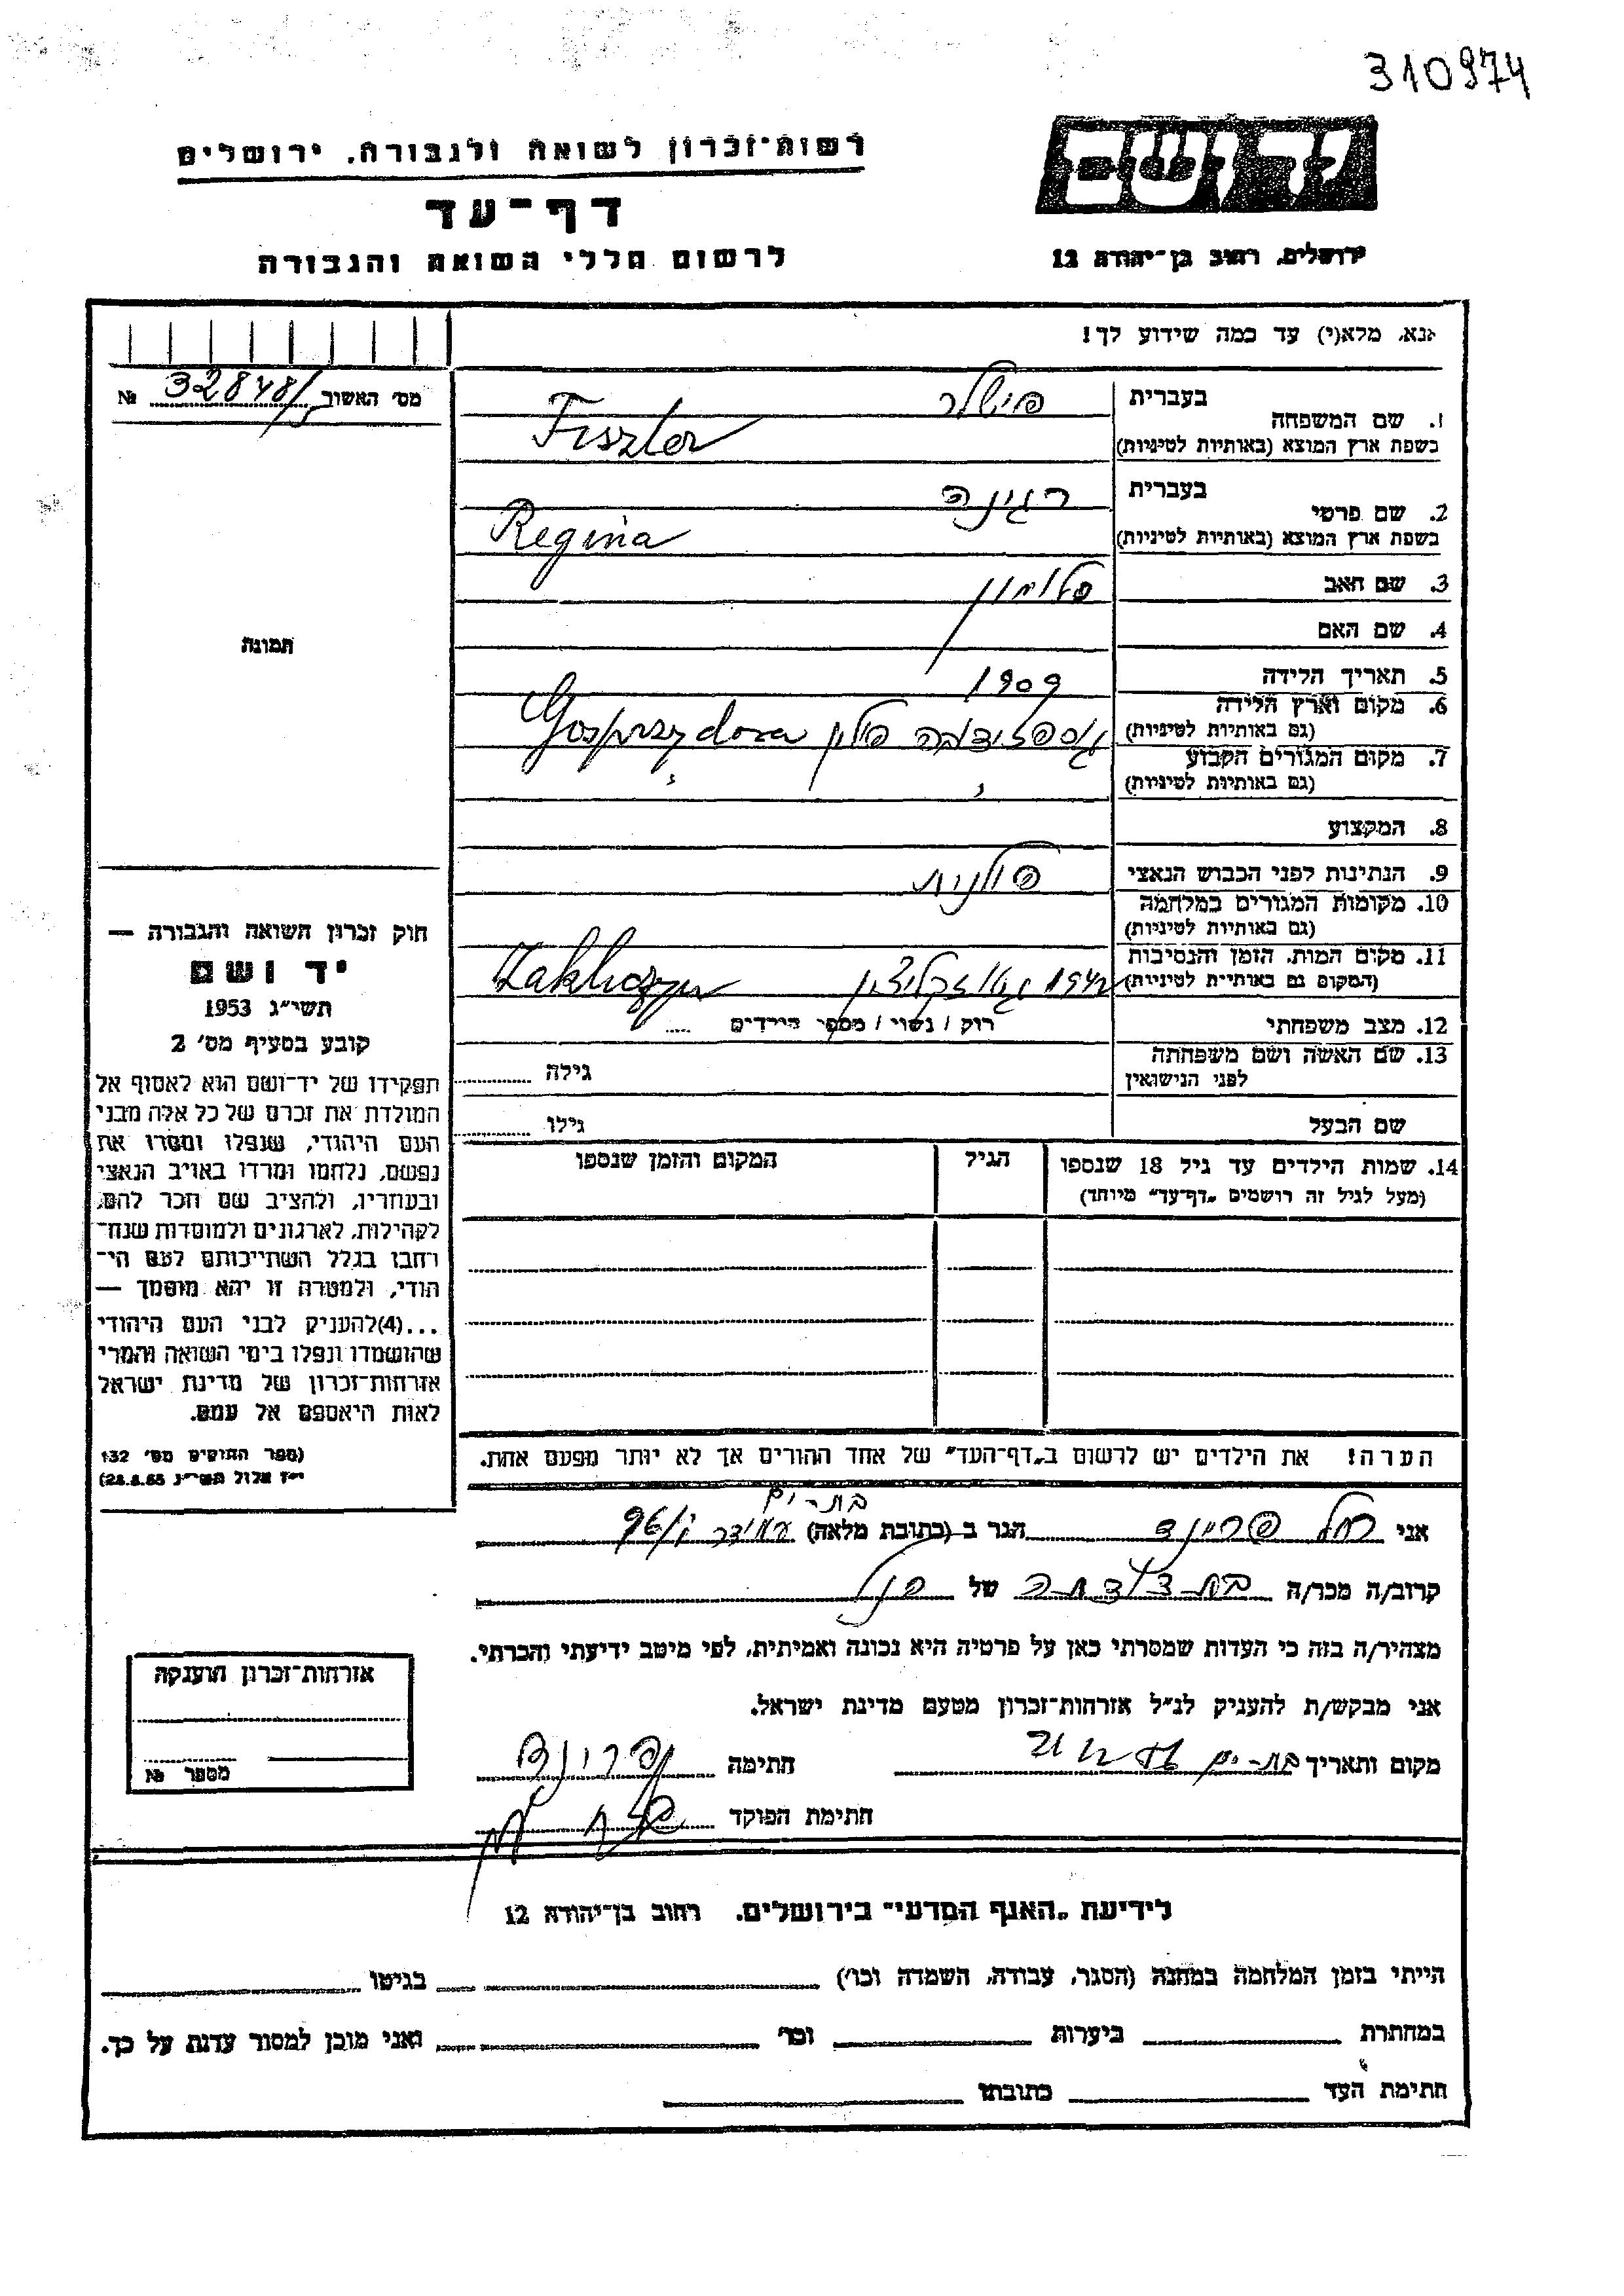 310974
יד ושם
רשות-זכרון לשואה ולגבורה, ירושלים
דף-עד
לרשום חללי השואה והגבורה
ירושלים, רחוב בן-יהודה 12
אנא, מלא(י) עד כמה שידוע לך!
מס׳ האשור 32848/ №
1. שם המשפחה
בעברית פישלר
בשפת ארץ המוצא (באותיות לטיניות) Fiszler
2. שם פרטי
בעברית רגינה
בשפת ארץ המוצא (באותיות לטיניות) Regina
3. שם האב סלומון
4. שם האם
5. תאריך הלידה 1909
6. מקום וארץ הלידה
(גם באותיות לטיניות) פולין Gosprzydowa
7. מקום המגורים הקבוע
(גם באותיות לטיניות) " "
8. המקצוע
9. הנתינות לפני הכבוש הנאצי פולנית
10. מקומות המגורים במלחמה
(גם באותיות לטיניות)
11. מקום המות, הזמן והנסיבות
(המקום גם באותיות לטיניות) 1942 Zakliczyn
12. מצב משפחתי רוק / נשוי / מספר הילדים
13. שם האשה ושם משפחתה
לפני הנישואין
גילה
שם הבעל
גילו
14. שמות הילדים עד גיל 18 שנספו
(מעל לגיל זה רושמים „דף-עד" מיוחד)
הגיל
המקום והזמן שנספו
הערה! את הילדים יש לרשום ב„דף-העד" של אחד ההורים אך לא יותר מפעם אחת.
תמונה
חוק זכרון השואה והגבורה —
יד ושם
תשי״ג 1953
קובע בסעיף מס׳ 2
תפקידו של יד-ושם הוא לאסוף אל
המולדת את זכרם של כל אלה מבני
העם היהודי, שנפלו ומסרו את
נפשם, נלחמו ומרדו באויב הנאצי
ובעוזריו, ולהציב שם וזכר להם,
לקהילות, לארגונים ולמוסדות שנח-
רבו בגלל השתייכותם לעם הי-
הודי, ולמטרה זו יהא מוסמך —
...(4)להעניק לבני העם היהודי
שהושמדו ונפלו בימי השואה והמרי
אזרחות-זכרון של מדינת ישראל
לאות היאספם אל עמם.
(ספר החוקים מס׳ 132
י״ז אלול תשי״ג
בת-ים
אני רחל פרוינד הגר ב (כתובת מלאה) עמידר 96
קרוב/ה מכר/ה בת דודתה של הנ״ל
מצהיר/ה בזה כי העדות שמסרתי כאן על פרטיה היא נכונה ואמיתית, לפי מיטב ידיעתי והכרתי.
אני מבקש/ת להעניק לנ״ל אזרחות-זכרון מטעם מדינת ישראל.
מקום ותאריך בת-ים חתימה פרוינד
חתימת הפוקד
אזרחות-זכרון הוענקה
מספר №
לידיעת „האגף המדעי" בירושלים, רחוב בן-יהודה 12
הייתי בזמן המלחמה במחנה (הסגר, עבודה, השמדה וכו׳) בגיטו
במחתרת ביערות וכו׳ ואני מוכן למסור עדות על כך.
חתימת העד כתובתו